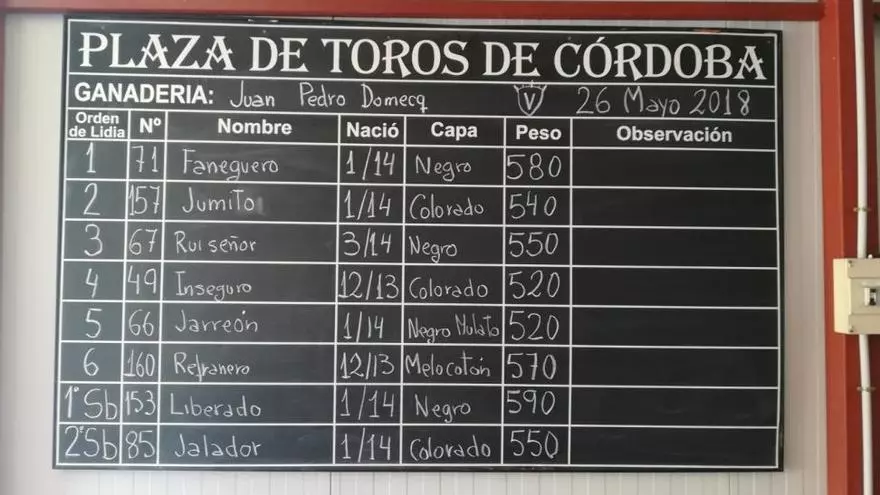 PLAZA DE TOROS DE CÓRDOBA
GANADERIA: Juan Pedro Domecq V 26 Mayo 2018
Orden de Lidia Nº Nombre Nació Capa Peso Observación
1 71 Faneguero 1/14 Negro 580
2 157 Jumito 1/14 Colorado 540
3 67 Ruiseñor 3/14 Negro 550
4 49 Inseguro 12/13 Colorado 520
5 66 Jarreón 1/14 Negro Mulato 520
6 160 Refranero 12/13 Melocotón 570
1º Sb 153 Liberado 1/14 Negro 590
2º Sb 85 Jalador 1/14 Colorado 550